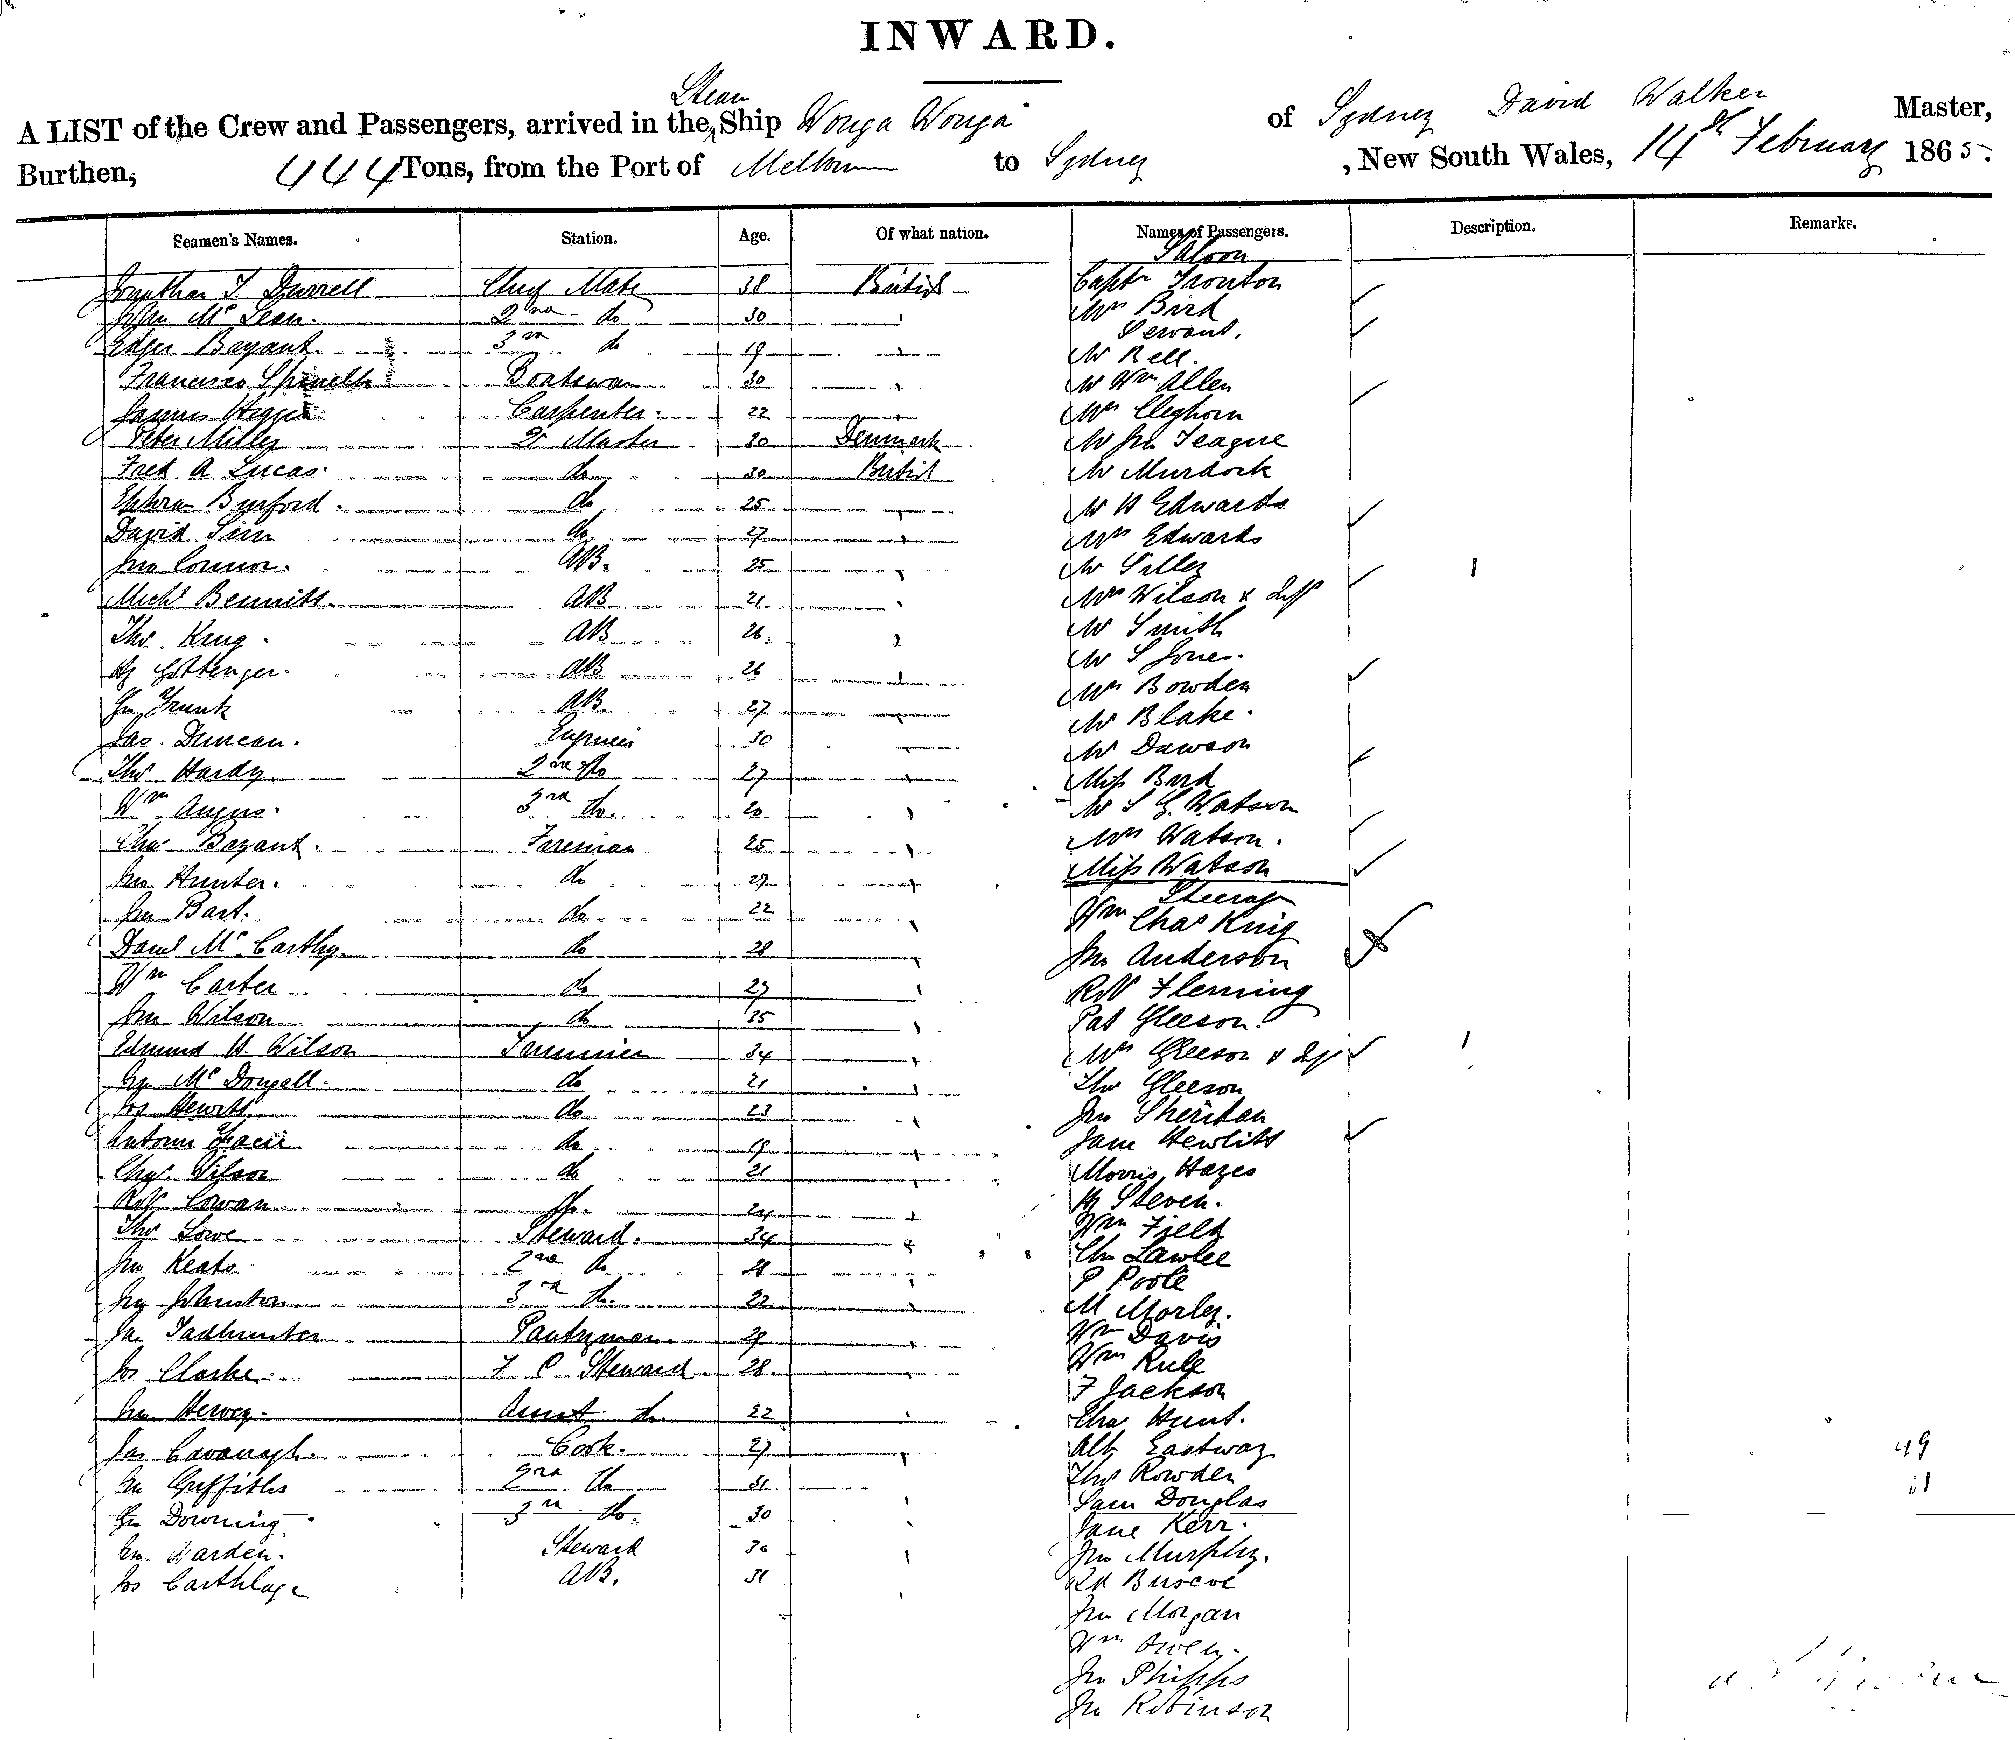 INWARD.
Steam
A LIST of the Crew and Passengers, arrived in the Ship Wonga Wonga of Sydney David Walker Master,
Burthen, 444 Tons, from the Port of Melbourne to Sydney, New South Wales, 14th February 1865.
Seamen's Names. Station. Age. Of what nation. Names of Passengers. Description. Remarks.
Saloon
Jonathan T Durrell Chief Mate 38 British Captn Trouton
John Mc Lean. 2nd do 30 " Mrs Bird
Servant.
Edgar Bayant 3rd do 19 " Mr Bell.
Francisco Spinelli Boatswan 30 " Mr Wm Allen
James Carpenter. 22 " Mrs Cleghorn
Peter Miller Qr Master 30 Denmark Mr Jno Teague
Fred A Lucas. do 30 British Mr Murdock
Ephram Burford. do 25 " Mr H Edwards
David Sim do 27 " Mrs Edwards
Jno Connor. AB. 25 " Mr Silley
Michl Bennitt. AB 21 " Mrs Wilson &
Thos King. AB 26. " Mr Smith
Hy Gottenger. AB 26 " Mr S Jones.
Mrs Bowden
Jno Trunk AB. 27 " Mr Blake.
Jas. Duncan. Engineer 30 Mr Dawson
Thos Hardy 2nd do 27 " Miss Bard
Wm Angus. 3rd do. 20 " Mr S G. Watson
Chas Bayant. Fireman 25 " Mrs Watson.
Jno Hunter. do 27 " Miss Watson
Steerage
Jno Bart. do 22 " Wm Chas King
Danl Mc Carthy. do 28 " Jno Anderson
Wm Carter do 27 " Robt Fleming
Jno Wilson do 35 " Pat Gleeson.
Edmund H. Wilson Trimmer 34 " Mrs Gleeson &
Jno Mc Dougall. do 21 " Thos Gleeson
Jos Hewitt do 23 " Jno Sheridan
Antonio do 19 " Jane Hewlitt
Chas. Wilson do 21 " Morris Hayes
Robt Cowan do. 24 " Hy Steven.
Thos Lowe Steward. 34 " Wm Field
Jno Keats 2nd do " Chs Lawlee
P Poole
Jno Johnston 3rd do. 22 " M Morley.
Jno Tadhunter Pantryman. 29 " Wm Davis
Jos Clarke. F C Steward 28 " Wm Rule
F Jackson
Jno Hervey. Assist do 22 " Chas Hunt.
Jas Cavanagh. Cook. 27 " Alb Eastway 49
Jno Griffiths 2nd do 31 Thos Rowden
Sam Douglas
Jno Downing. 3rd do. 30 " Jane Kerr.
Jno. Harden. Steward 30 " Jno Murphy.
Jos Carthlage AB. 31 " Rd Buscoe
Jno Morgan
Wm Owen.
Jno Phipps
Jno Robinson